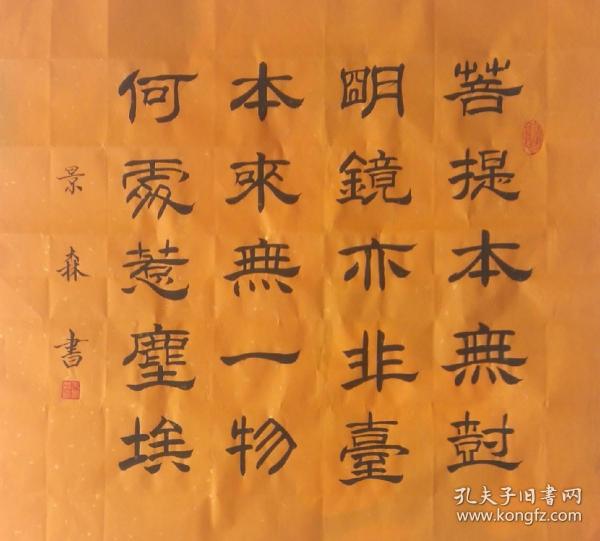 菩提本無尌
明鏡亦非臺
本來無一物
何處惹塵埃
景森書
孔夫子旧書网
www.kongfz.com